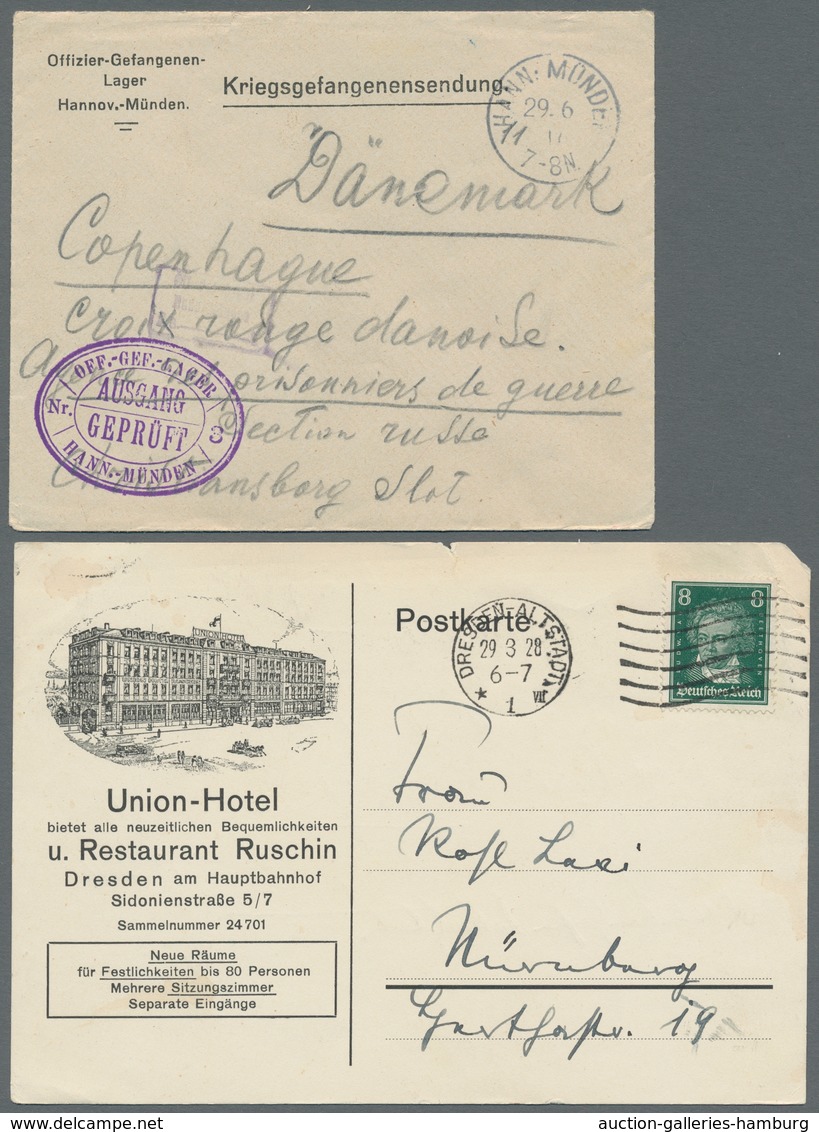 Offizier-Gefangenen-
Lager
Hannov.-Münden.
Kriegsgefangenensendung.
HANN. MÜNDEN
29.6
11 17
7-8N.
Dänemark
Copenhague
Croix rouge danoise.
prisonniers de guerre
Section russe
Slot.
OFF.-GEF.-LAGER
Nr. AUSGANG 3
GEPRÜFT
HANN.-MÜNDEN
UNION HOTEL
Union-Hotel
bietet alle neuzeitlichen Bequemlichkeiten
u. Restaurant Ruschin
Dresden am Hauptbahnhof
Sidonienstraße 5/7
Sammelnummer 24701
Neue Räume
für Festlichkeiten bis 80 Personen
Mehrere Sitzungszimmer
Separate Eingänge
Postkarte
DRESDEN-ALTSTADT
29 3 28
6-7
* 1 VII
8 8
BEETHOVEN
Deutsches Reich
Frau
Nürnberg
19
auction-galleries-hamburg